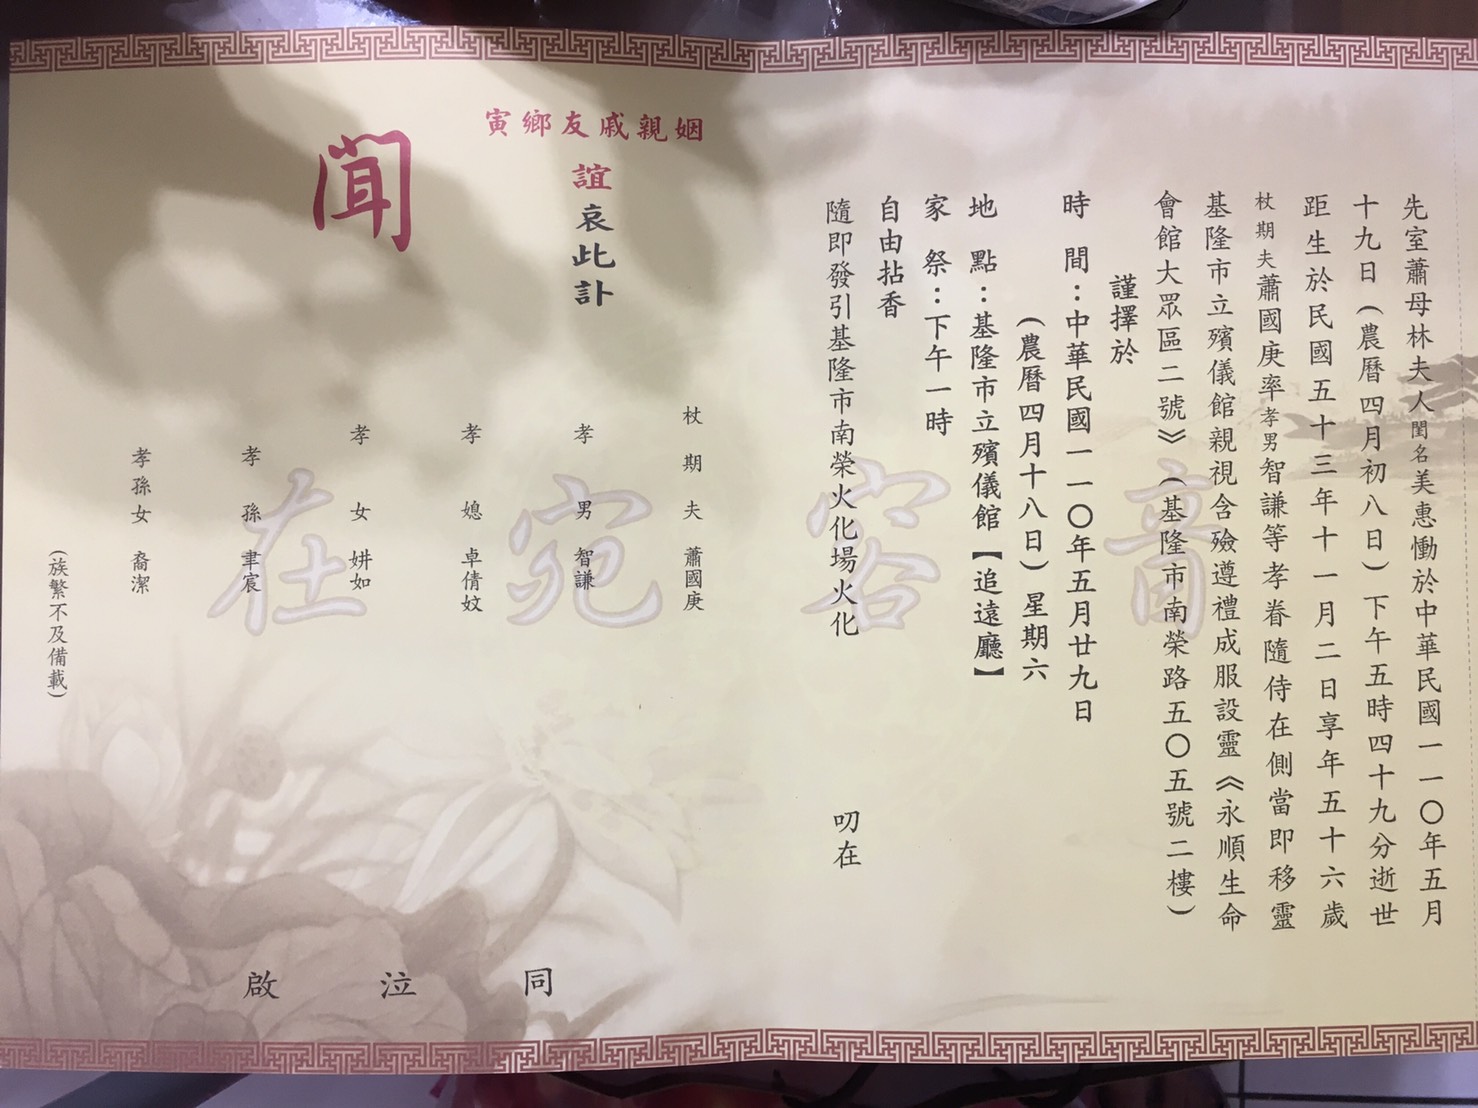 先室蕭母林夫人閨名美惠慟於中華民國一一〇年五月
十九日(農曆四月初八日)下午五時四十九分逝世
距生於民國五十三年十一月二日享年五十六歲
杖期夫蕭國庚率孝男智謙等孝眷隨侍在側當即移靈
基隆市立殯儀館親視含殮遵禮成服設靈《永順生命
會館大眾區二號》(基隆市南榮路五〇五號二樓)
謹擇於
時間:中華民國一一〇年五月廿九日
(農曆四月十八日)星期六
地點:基隆市立殯儀館【追遠廳】
家祭:下午一時
自由拈香
隨即發引基隆市南榮火化場火化
叨在
姻親戚友鄉寅
誼哀此訃
聞
杖期夫 蕭國庚
孝男 智謙
孝媳 卓倩妏
孝女 姘如
孝孫 聿宸
孝孫女 裔潔
(族繁不及備載)
同泣啟
音容宛在